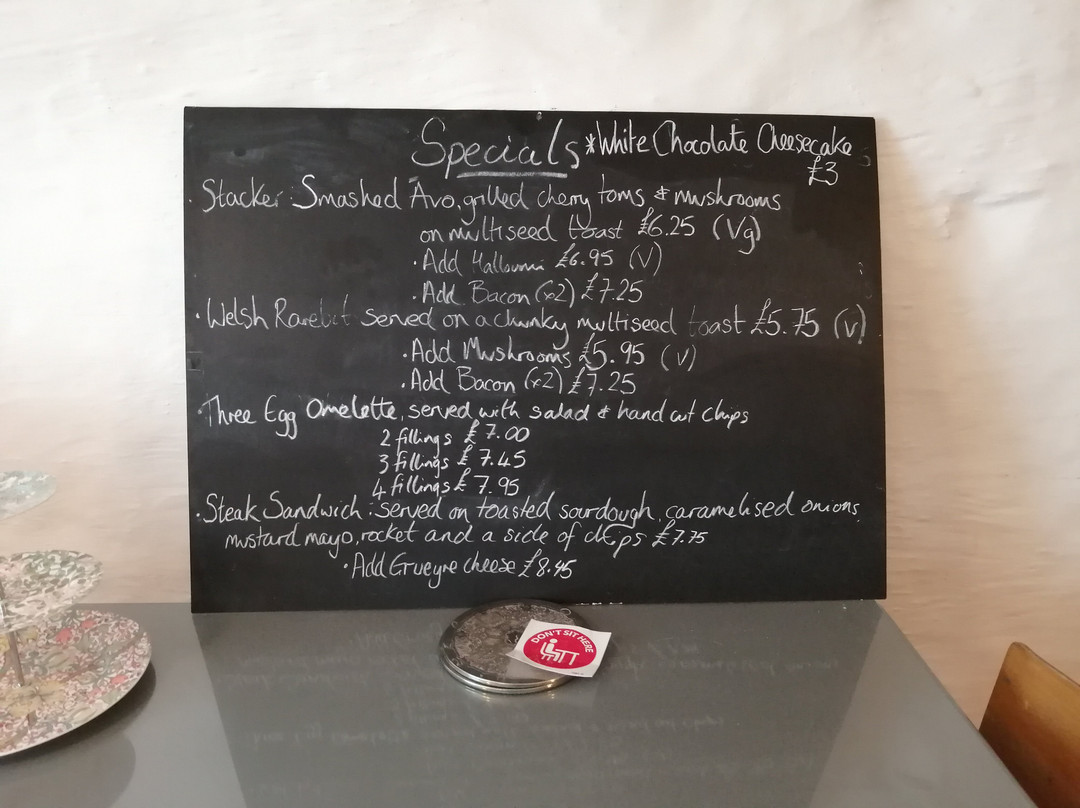 Specials *White Chocolate Cheesecake
£3
· Stacker: Smashed Avo, grilled cherry toms & mushrooms
on multiseed toast £6.25 (Vg)
· Add Halloumi £6.95 (V)
· Add Bacon (x2) £7.25
· Welsh Rarebit served on a chunky multiseed toast £5.75 (v)
· Add Mushrooms £5.95 (v)
· Add Bacon (x2) £7.25
· Three Egg Omelette, served with salad & hand cut chips
2 fillings £7.00
3 fillings £7.45
4 fillings £7.95
· Steak Sandwich: served on toasted sourdough, caramelised onions,
mustard mayo, rocket and a side of chips £7.75
· Add Grueyre cheese £8.45
DON'T SIT HERE